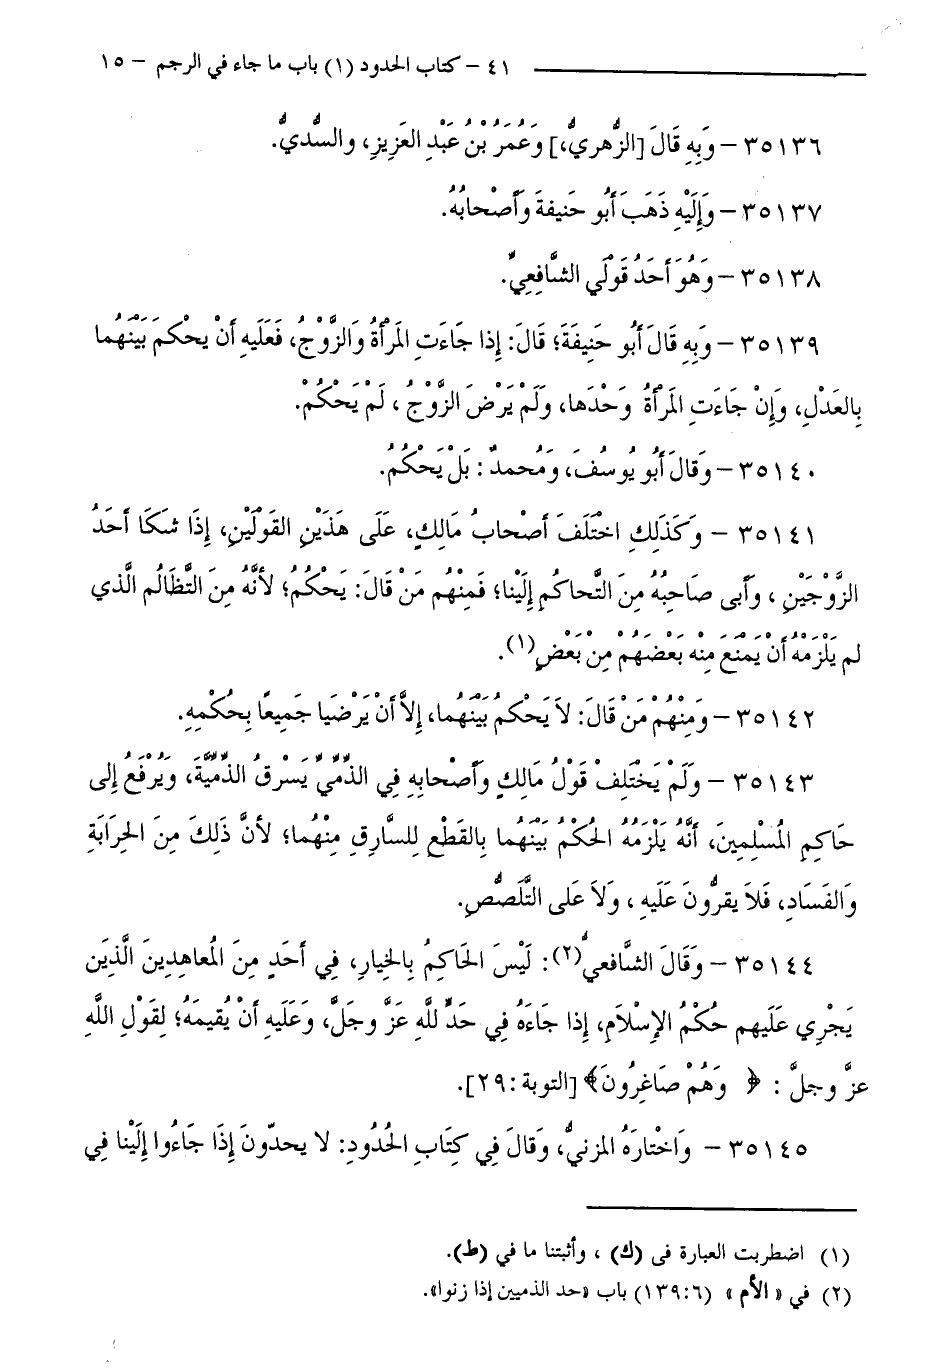 ٤١ – كتاب الحدود (١) باب ما جاء في الرجم – ١٥
٣٥١٣٦ – وَبِهِ قَالَ [الزُّهريُّ،] وَعُمَرُ بْنُ عَبْدِ العَزِيزِ، والسُّديُّ.
٣٥١٣٧ – وَإِلَيْهِ ذَهَبَ أَبُو حَنيفةَ وَأَصْحابُهُ.
٣٥١٣٨ – وَهُوَ أَحَدُ قَوْلَي الشَّافِعِيِّ.
٣٥١٣٩ – وَبِهِ قَالَ أَبُو حَنِيفَةَ؛ قَالَ: إِذا جَاءَتِ المَرْأَةُ وَالزَّوْجُ، فَعَلَيهِ أَنْ يحْكمَ بَيْنَهُما
بِالعَدْلِ، وَإِنْ جَاءَتِ المَرْأَةُ وَحْدَها، وَلَمْ يَرْضَ الزَّوْجُ ، لَمْ يَحْكُمْ.
٣٥١٤٠ – وَقَالَ أَبُو يُوسُفَ، وَمُحمدٌ : بَلْ يَحْكُمُ.
٣٥١٤١ – وَكَذَلِكِ اخْتَلَفَ أَصْحابُ مَالِكٍ، عَلَى هَذَيْنِ القَوْلَيْنِ، إِذَا شَكَا أَحَدُ
الزَّوْجَيْنِ ، وَأَبى صَاحِبُهُ مِنَ التَّحاكُمِ إِلَيْنا؛ فَمِنْهُم مَنْ قَالَ: يَحْكُمُ؛ لأَنَّهُ مِنَ التَّظَالُم الَّذي
لم يَلْزَمْهُ أَنْ يَمْنَعَ مِنْه بَعْضَهُمْ مِنْ بَعْضٍ(١).
٣٥١٤٢ – وَمِنْهُمْ مَنْ قَالَ: لاَ يَحْكمُ بَيْنَهُما، إِلاَّ أَنْ يَرْضَيا جَمِيعًا بِحُكْمِهِ.
٣٥١٤٣ – وَلَمْ يَخْتَلِفْ قَوْلُ مَالِكٍ وَأَصْحابِهِ فِي الذِّمِّيِّ يَسْرقُ الذِّمِّيَّةَ، وَيُرْفَعُ إِلى
حَاكِمِ المُسْلِمِينَ، أَنَّهُ يَلْزَمُهُ الحُكْمُ بَيْنَهُما بِالقَطْعِ لِلسَّارِقِ مِنْهُما؛ لأَنَّ ذَلِكَ مِنَ الحِرَابَةِ
وَالفَسَادِ، فَلاَ يقرُّونَ عَلَيهِ ، وَلاَ عَلى التَّلَصُّصِ.
٣٥١٤٤ – وَقَالَ الشَّافعيُّ(٢): لَيْسَ الحَاكِمُ بِالخِيارِ، فِي أَحَدٍ مِنَ المُعاهِدِينَ الَّذِيَن
يَجْرِي عَلَيهم حُكْمُ الإِسْلاَمِ، إِذا جَاءَهُ فِي حَدٍّ للَّهِ عَزَّ وجَلَّ، وَعَلَيهِ أَنْ يُقيمَهُ؛ لِقَوْلِ اللَّهِ
عزَّ وجلَّ : ﴿ وَهُمْ صَاغِرُونَ﴾ [التوبة : ٢٩].
٣٥١٤٥ – وَاخْتارَهُ المزنيُّ، وَقَالَ فِي كِتَابِ الحُدُودِ: لا يحدّونَ إِذَا جَاءُوا إِلَيْنا فِي
(١) اضطربت العبارة فى (ك) ، وأثبتنا ما في (ط).
(٢) في « الأم » (٦: ١٣٩) باب «حد الذميين إذا زنوا».